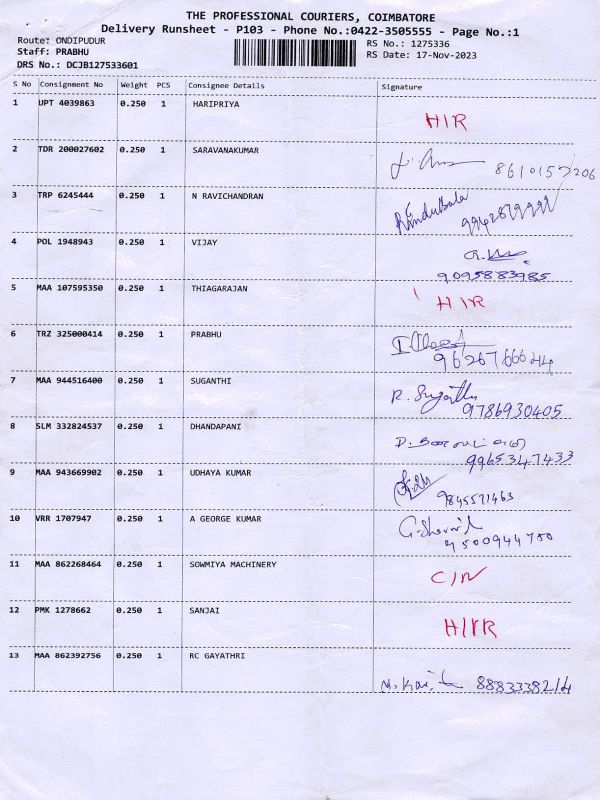 THE PROFESSIONAL COURIERS, COIMBATORE
Delivery Runsheet - P103 - Phone No.:0422-3505555 - Page No.:1
Route: ONDIPUDUR RS No.: 1275336
Staff: PRABHU RS Date: 17-Nov-2023
DRS No.: DCJB127533601
S No Consignment No Weight PCS Consignee Details Signature
1 UPT 4039863 0.250 1 HARIPRIYA
H/R
2 TDR 200027602 0.250 1 SARAVANAKUMAR
8610157206
3 TRP 6245444 0.250 1 N RAVICHANDRAN
4 POL 1948943 0.250 1 VIJAY
9095883985
5 MAA 107595350 0.250 1 THIAGARAJAN
H/R
6 TRZ 325000414 0.250 1 PRABHU
7 MAA 944516400 0.250 1 SUGANTHI
R. Suganthi
9786930405
8 SLM 332824537 0.250 1 DHANDAPANI
9965347433
9 MAA 943669902 0.250 1 UDHAYA KUMAR
10 VRR 1707947 0.250 1 A GEORGE KUMAR
9500944750
11 MAA 862268464 0.250 1 SOWMIYA MACHINERY
C/N
12 PMK 1278662 0.250 1 SANJAI
13 MAA 862392756 0.250 1 RC GAYATHRI
8883338214